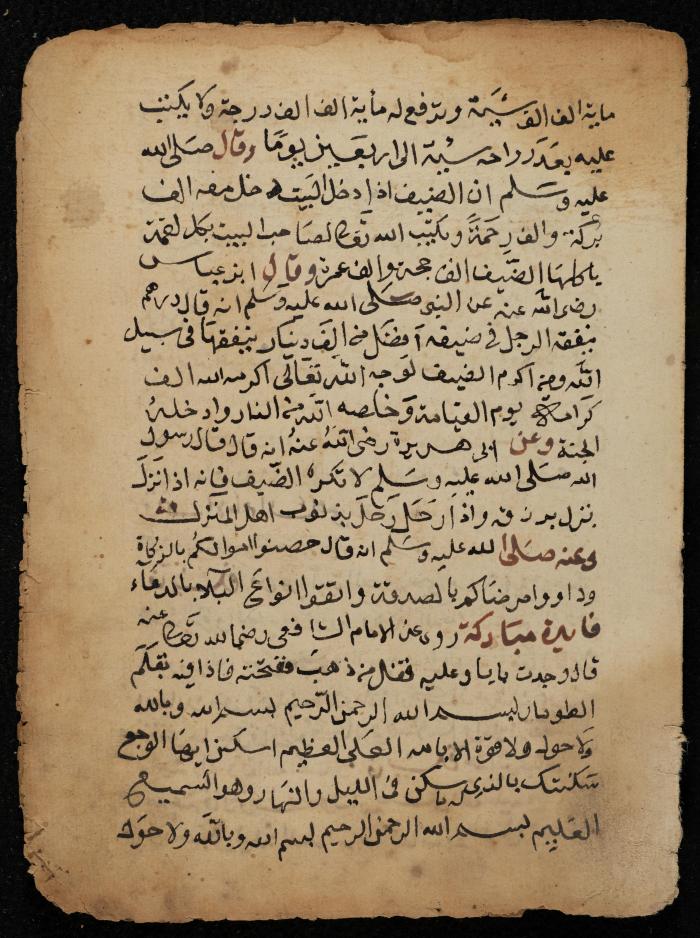 ماية الف الف سيئة وترفع له مأية الف الف درجة ولا يكتب
عليه بعد رواحه سيئة الى اربعين يومًا وقال صلى الله
عليه وسلم ان الضيف اذا دخل البيت دخل معه الف
بركة والف رحمة ويكتب الله تعالى لصاحب البيت بكل لقمة
ياكلها الضيف الف حجة والف عمرة وقال ابن عباس
رضى الله عنه عن النبى صلى الله عليه وسلم انه قال درهم
ينفقه الرجل في ضيفه افضل من الف دينار ينفقها في سبيل
الله ومن اكرم الضيف لوجه الله تعالى اكرمه الله الف
كرامة يوم القيامة وخلصه الله من النار وادخله
الجنة وعن ابى هريرة رضى الله عنه انه قال قال رسول
الله صلى الله عليه وسلم لا تكره الضيف فانه اذا نزل
نزل برزقه واذا رحل رحل بذنوب اهل المنزل
وعنه صلى الله عليه وسلم انه قال حصنوا اموالكم بالزكاة
وداووا مرضاكم بالصدقة واتقوا انواع البلا بالدعاء
فايدة مباركة روى عن الامام الشافعى رضى الله تعالى عنه
قال وجدت بابا وعليه قفل من ذهب ففتحته فاذا فيه
بسم الله الرحمن الرحيم بسم الله وبالله
ولا حول ولا قوة الا بالله العلى العظيم اسكن ايها الوجع
سكنتك بالذى له ما سكن فى الليل والنهار وهو السميع
العليم بسم الله الرحمن الرحيم بسم الله وبالله ولا حول